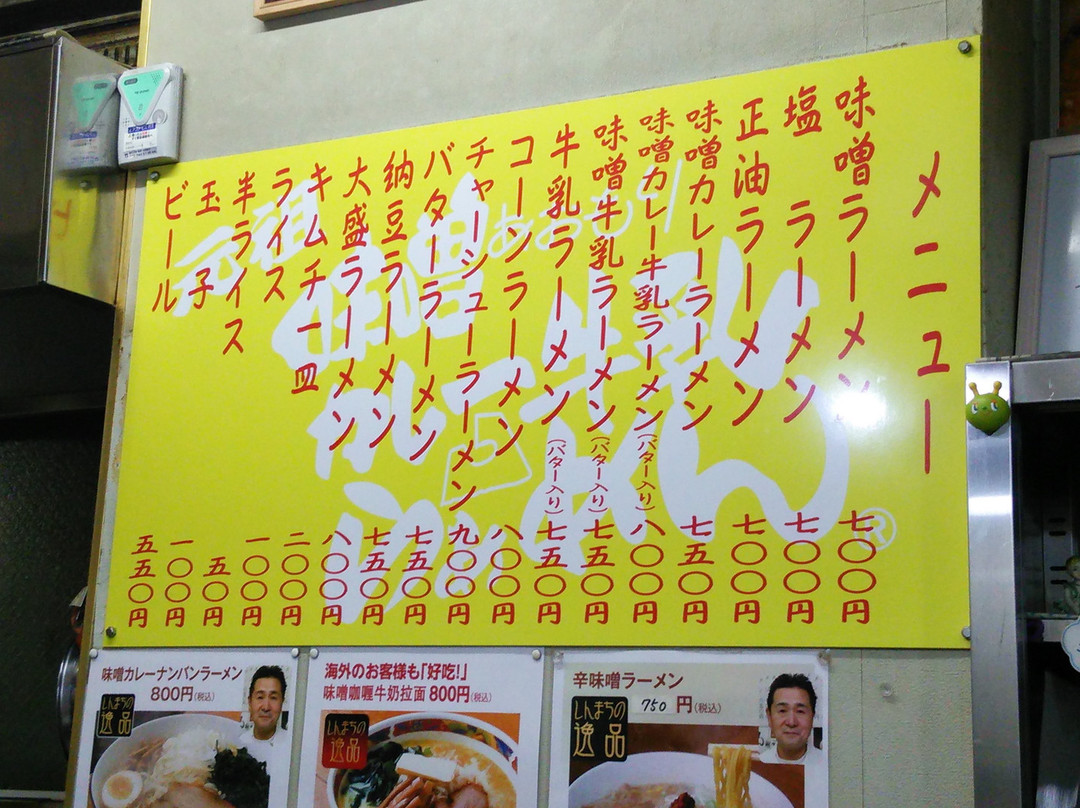 メニュー
味噌ラーメン 七〇〇円
塩ラーメン 七〇〇円
正油ラーメン 七〇〇円
味噌カレーラーメン 七五〇円
味噌カレー牛乳ラーメン(バター入り) 八〇〇円
味噌牛乳ラーメン(バター入り) 七五〇円
牛乳ラーメン(バター入り) 七五〇円
コーンラーメン 八〇〇円
チャーシューラーメン 九〇〇円
バターラーメン 七五〇円
納豆ラーメン 七五〇円
大盛ラーメン 八〇〇円
キムチ一皿 二〇〇円
ライス 一〇〇円
半ライス 五〇円
玉子 一〇〇円
ビール 五五〇円
元祖
あおもり
味噌
カレー牛乳
らーめん®
味噌カレーナンバンラーメン
800円(税込)
しんまちの
逸品
海外のお客様も「好吃!」
味噌咖喱牛奶拉面 800円(税込)
しんまちの
逸品
辛味噌ラーメン
750円(税込)
しんまちの
逸品